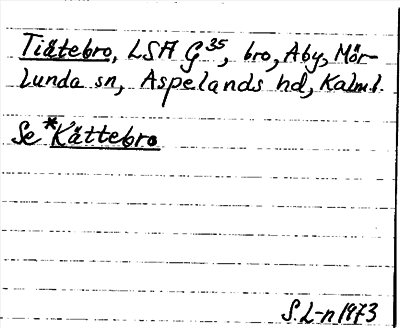 Tiätebro, LSA G 35, bro, Åby, Mör-
lunda sn, Aspelands hd, Kalm.l.
Se *Kättebro
S. L-n 1973